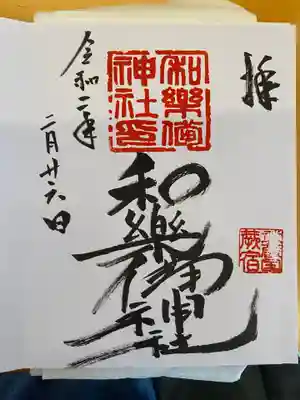 拝
和樂備
神社
和樂備神社
蕨宿
令和二年
二月廿六日